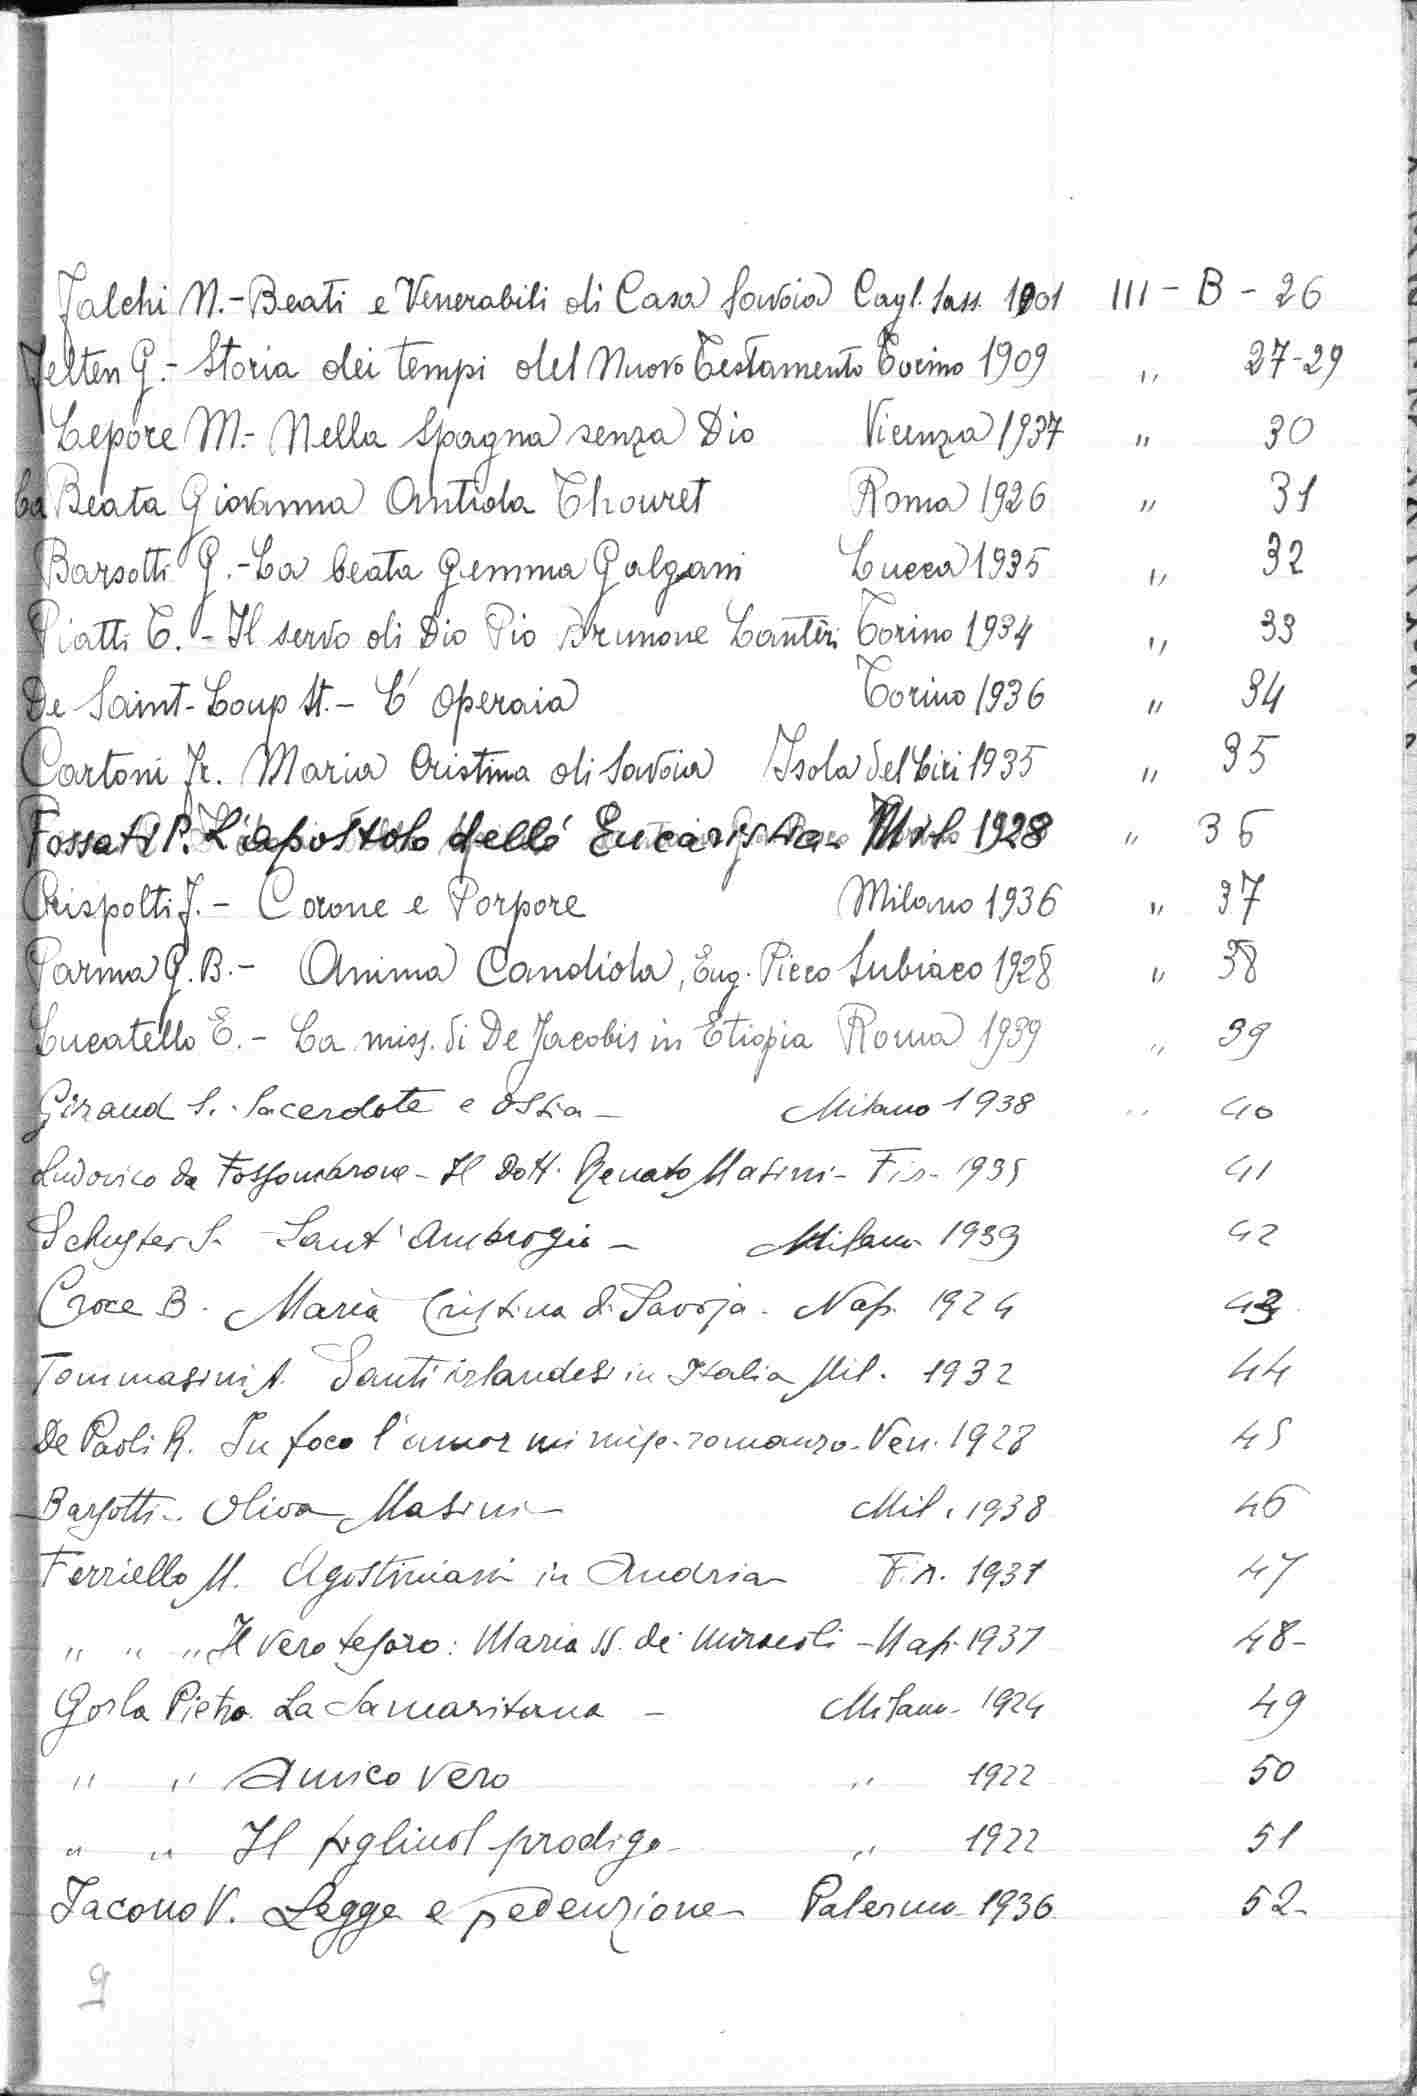 Falchi N. - Beati e Venerabili di Casa Savoia Cagl. Sass. 1901 III - B - 26
Felten G. - Storia dei tempi del Nuovo Testamento Torino 1909 " 27-29
Lepore M. - Nella Spagna senza Dio Vicenza 1937 " 30
La Beata Giovanna Antida Thouret Roma 1926 " 31
Barsotti G. - La beata Gemma Galgani Lucca 1935 " 32
Piatti T. - Il servo di Dio Pio Brunone Lanteri Torino 1934 " 33
De Saint-Loup St. - L'Operaia Torino 1936 " 34
Cartoni Fr. Maria Cristina di Savoia Isola del Liri 1935 " 35
Fossati P. L'apostolo dell' Eucaristia - Mil 1928 " 36
Crispolti F. - Corone e Porpore Milano 1936 " 37
Parma G. B. - Anima Candida, Eug. Picco Subiaco 1928 " 38
Lucatello E. - La miss. di De Jacobis in Etiopia Roma 1939 " 39
Giraud S. - Sacerdote e ostia - Milano 1938 " 40
Ludovico da Fossombrone - Il Dott. Renato Masini - Fir - 1935 41
Schuster S. Sant'Ambrogio - Milano 1939 42
Croce B. Maria Cristina di Savoja - Nap. 1924 43
Tommasini A. Santi irlandesi in Italia Mil. 1932 44
De Paoli R. In foco l'amor mi mise - romanzo - Ven. 1928 45
Barsotti - Oliva Masini - Mil. 1938 46
Ferriello M. Agostiniani in Andria - Fir. 1937 47
" " " Il vero tesoro: Maria SS. dei Miracoli - Nap. 1937 48 -
Gorla Pietro. La Samaritana - Milano - 1924 49
" " Amico vero " 1922 50
" " Il figliuol prodigo - " 1922 51
Iacono V. Legge e redenzione - Palermo - 1936 52 -
9